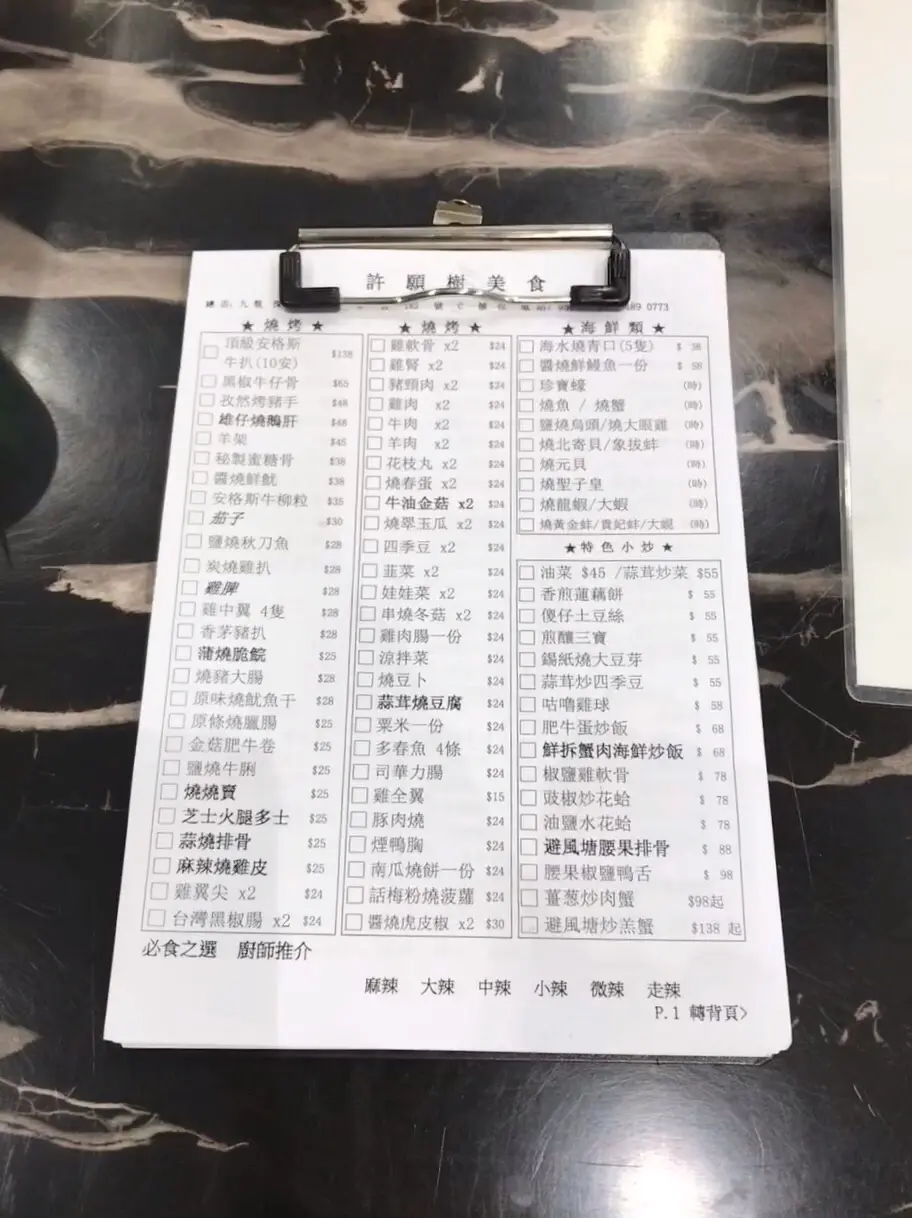 許願樹美食
總店:九龍
489 0773
★ 燒烤 ★
頂級安格斯
牛扒(10安) $138
黑椒牛仔骨 $65
孜然烤豬手 $48
雄仔燒鵝肝 $48
羊架 $45
秘製蜜糖骨 $38
醬燒鮮魷 $38
安格斯牛柳粒 $35
茄子 $30
鹽燒秋刀魚 $28
炭燒雞扒 $28
雞脾 $28
雞中翼 4隻 $28
香茅豬扒 $28
蒲燒脆鯇 $25
燒豬大腸 $28
原味燒魷魚干 $28
原條燒臘腸 $25
金菇肥牛卷 $25
鹽燒牛脷 $25
燒燒賣 $25
芝士火腿多士 $25
蒜燒排骨 $25
麻辣燒雞皮 $25
雞翼尖 x2 $24
台灣黑椒腸 x2 $24
★ 燒烤 ★
雞軟骨 x2 $24
雞腎 x2 $24
豬頸肉 x2 $24
雞肉 x2 $24
牛肉 x2 $24
羊肉 x2 $24
花枝丸 x2 $24
燒春蛋 x2 $24
牛油金菇 x2 $24
燒翠玉瓜 x2 $24
四季豆 x2 $24
韮菜 x2 $24
娃娃菜 x2 $24
串燒冬菇 x2 $24
雞肉腸一份 $24
涼拌菜 $24
燒豆卜 $24
蒜茸燒豆腐 $24
粟米一份 $24
多春魚 4條 $24
司華力腸 $24
雞全翼 $15
豚肉燒 $24
煙鴨胸 $24
南瓜燒餅一份 $24
話梅粉燒菠蘿 $24
醬燒虎皮椒 x2 $30
★ 海鮮類 ★
海水燒青口(5隻) $ 38
醬燒鮮鰻魚一份 $ 58
珍寶蠔 (時)
燒魚 / 燒蟹 (時)
鹽燒烏頭/燒大眼雞 (時)
燒北寄貝/象拔蚌 (時)
燒元貝 (時)
燒聖子皇 (時)
燒龍蝦/大蝦 (時)
燒黃金蚌/貴妃蚌/大蜆 (時)
★特色小炒★
油菜 $45 /蒜茸炒菜 $55
香煎蓮藕餅 $ 55
傻仔土豆絲 $ 55
煎釀三寶 $ 55
錫紙燒大豆芽 $ 55
蒜茸炒四季豆 $ 55
咕嚕雞球 $ 58
肥牛蛋炒飯 $ 68
鮮拆蟹肉海鮮炒飯 $ 68
椒鹽雞軟骨 $ 78
豉椒炒花蛤 $ 78
油鹽水花蛤 $ 78
避風塘腰果排骨 $ 88
腰果椒鹽鴨舌 $ 98
薑葱炒肉蟹 $98起
避風塘炒羔蟹 $138 起
必食之選 廚師推介
麻辣 大辣 中辣 小辣 微辣 走辣
P.1 轉背頁>